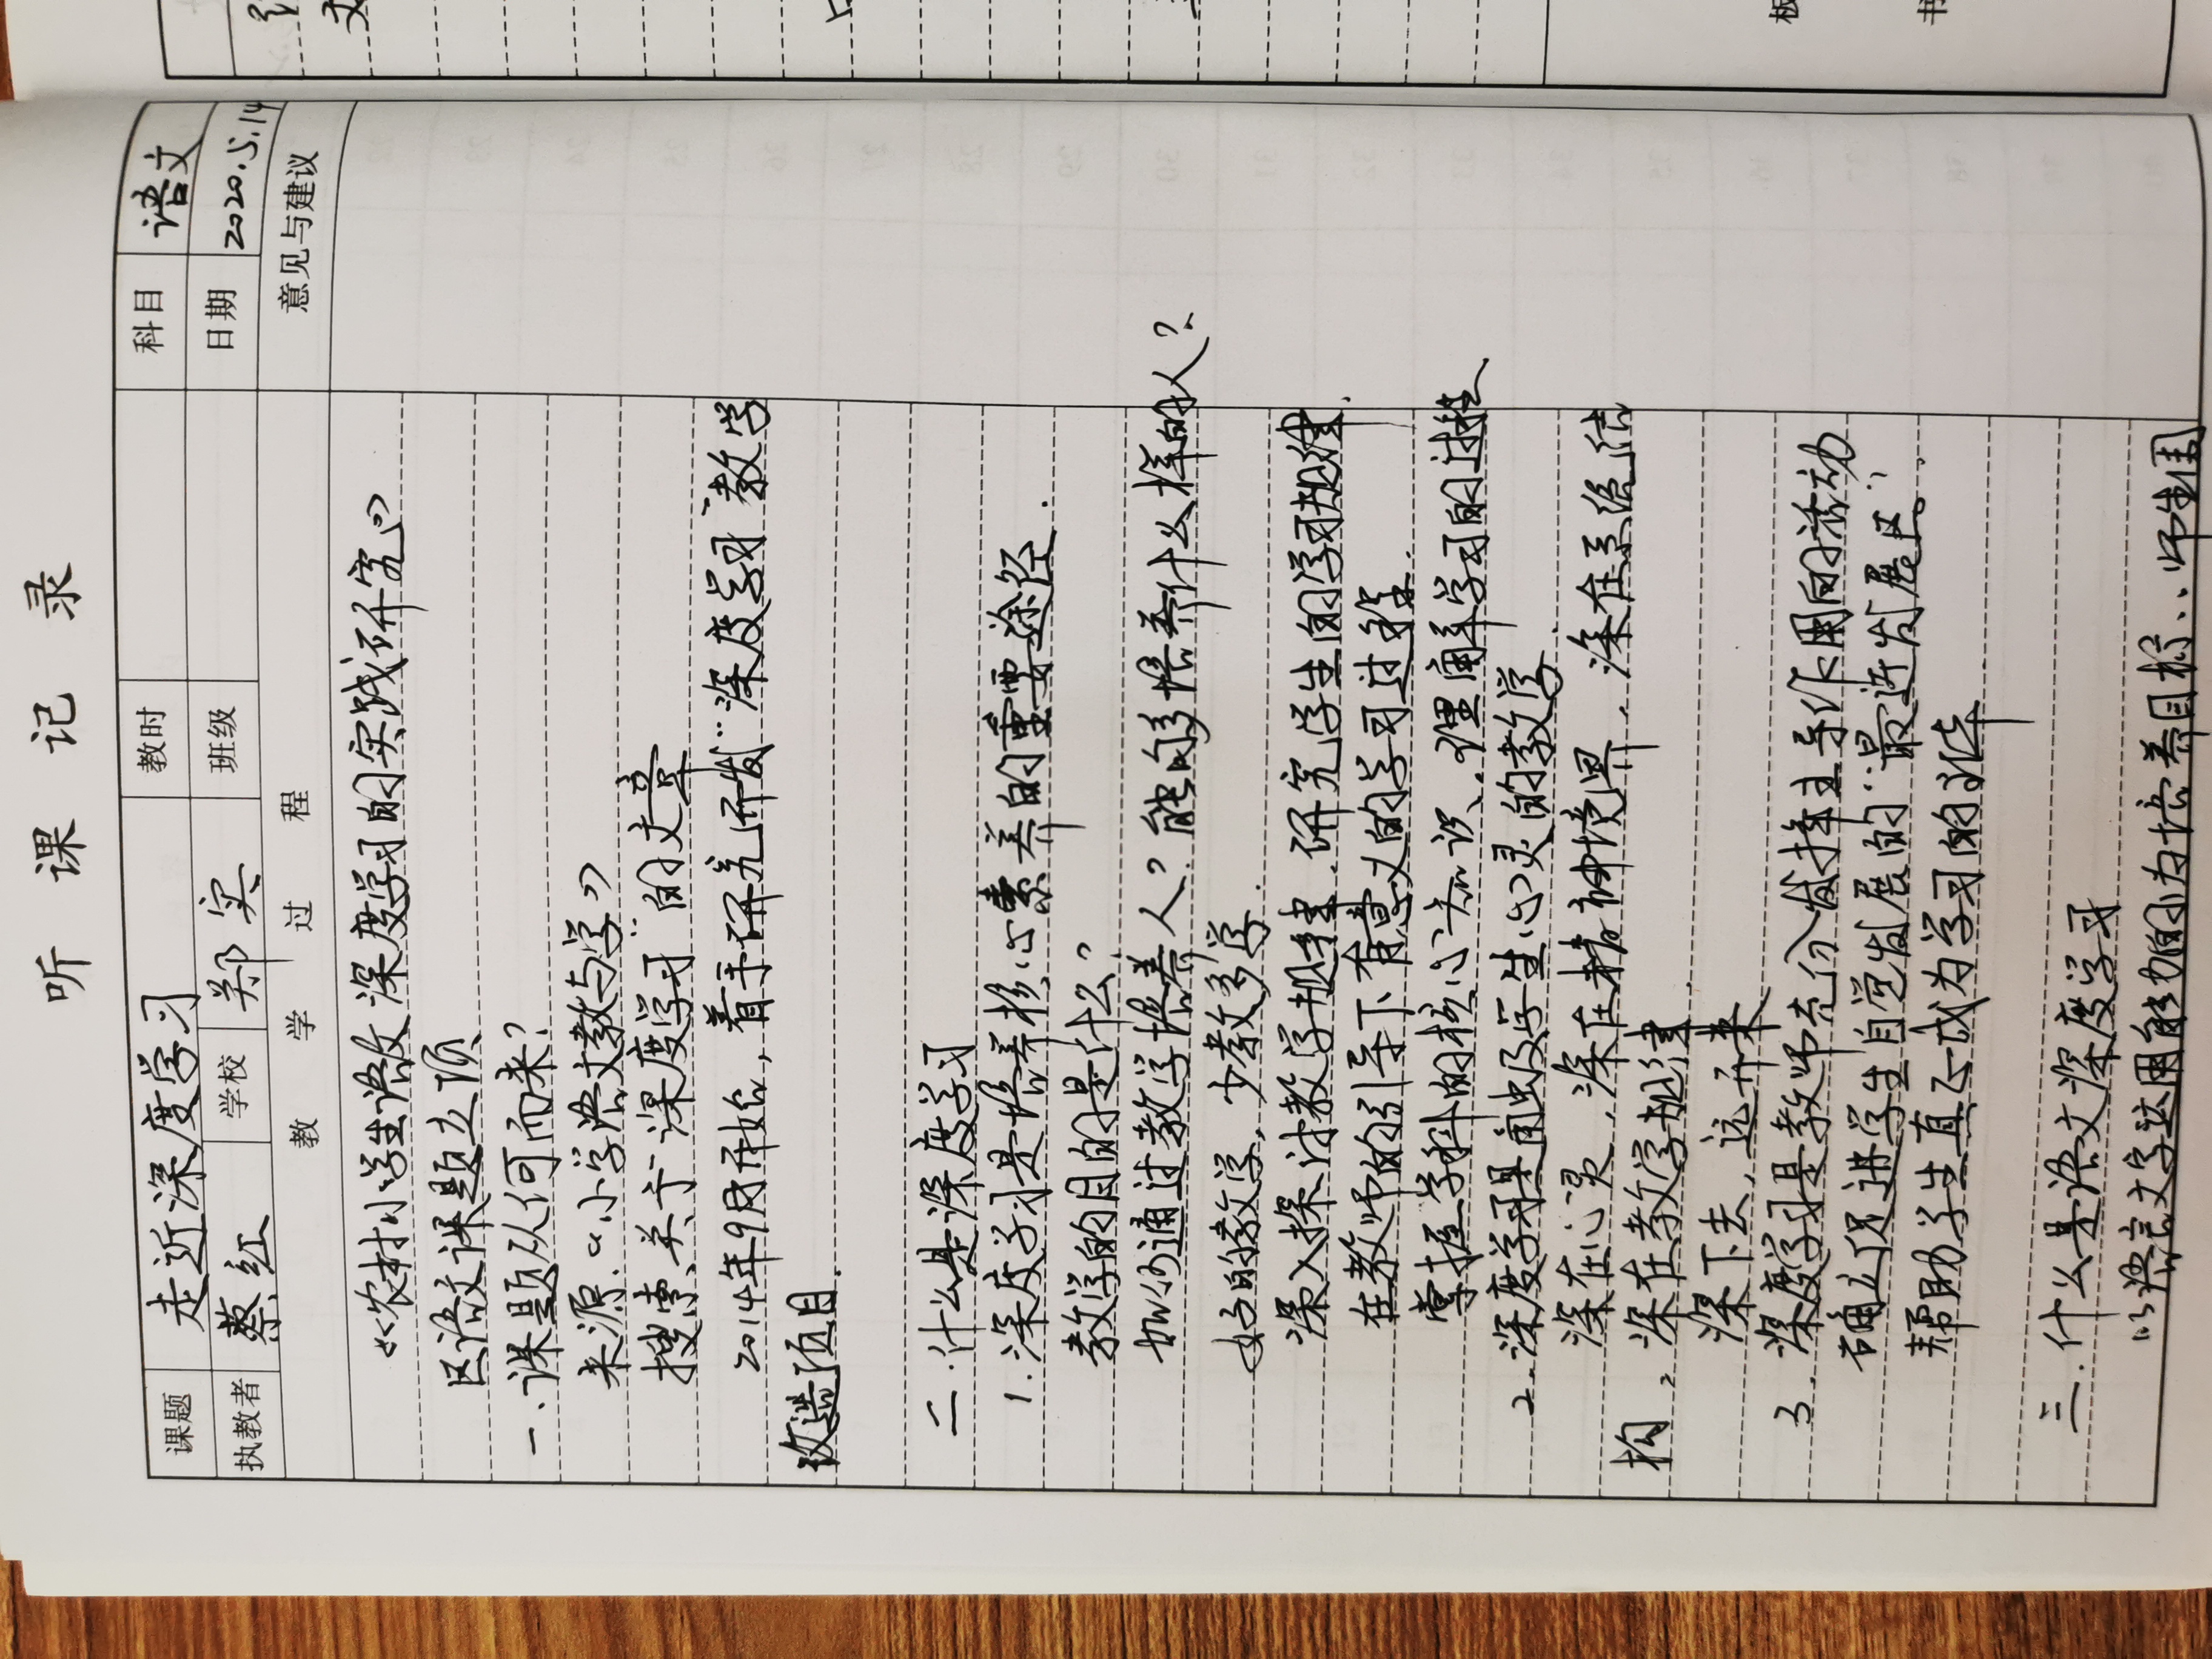 听课记录
课题 走近深度学习 教时 科目 语文
执教者 蔡红 学校 郑实 班级 日期 2020.5.14
教学过程 意见与建议
《农村小学生语文深度学习的实践研究》
区语文课题立项
一、课题从何而来?
来源:《小学语文教与学》
搜索关于"深度学习"的文章
2014年9月开始,着手研究开发"深度学习"教学
改进项目.
二.什么是深度学习
1.深度学习是培养核心素养的重要途径.
教学的目的是什么?
如何通过教学培养人?能够培养什么样的人?
好的教学,少教多学.
深入探讨教学规律.研究学生的学习规律.
在教师的引导下有意义的学习过程.
掌握学科的核心知识、理解学习的过程
2.深度学习是触及学生心灵的教学.
深在心灵,深在精神境界,深在系统结
构,深在教学规律.
深下去,远开来
3.深度学习是教师充份发挥主导作用的活动
确立促进学生自觉发展的"最近发展区",
帮助学生真正成为学习的主体
三.什么是语文深度学习
以语言文字运用能力的为培养目标、师生围
板
书